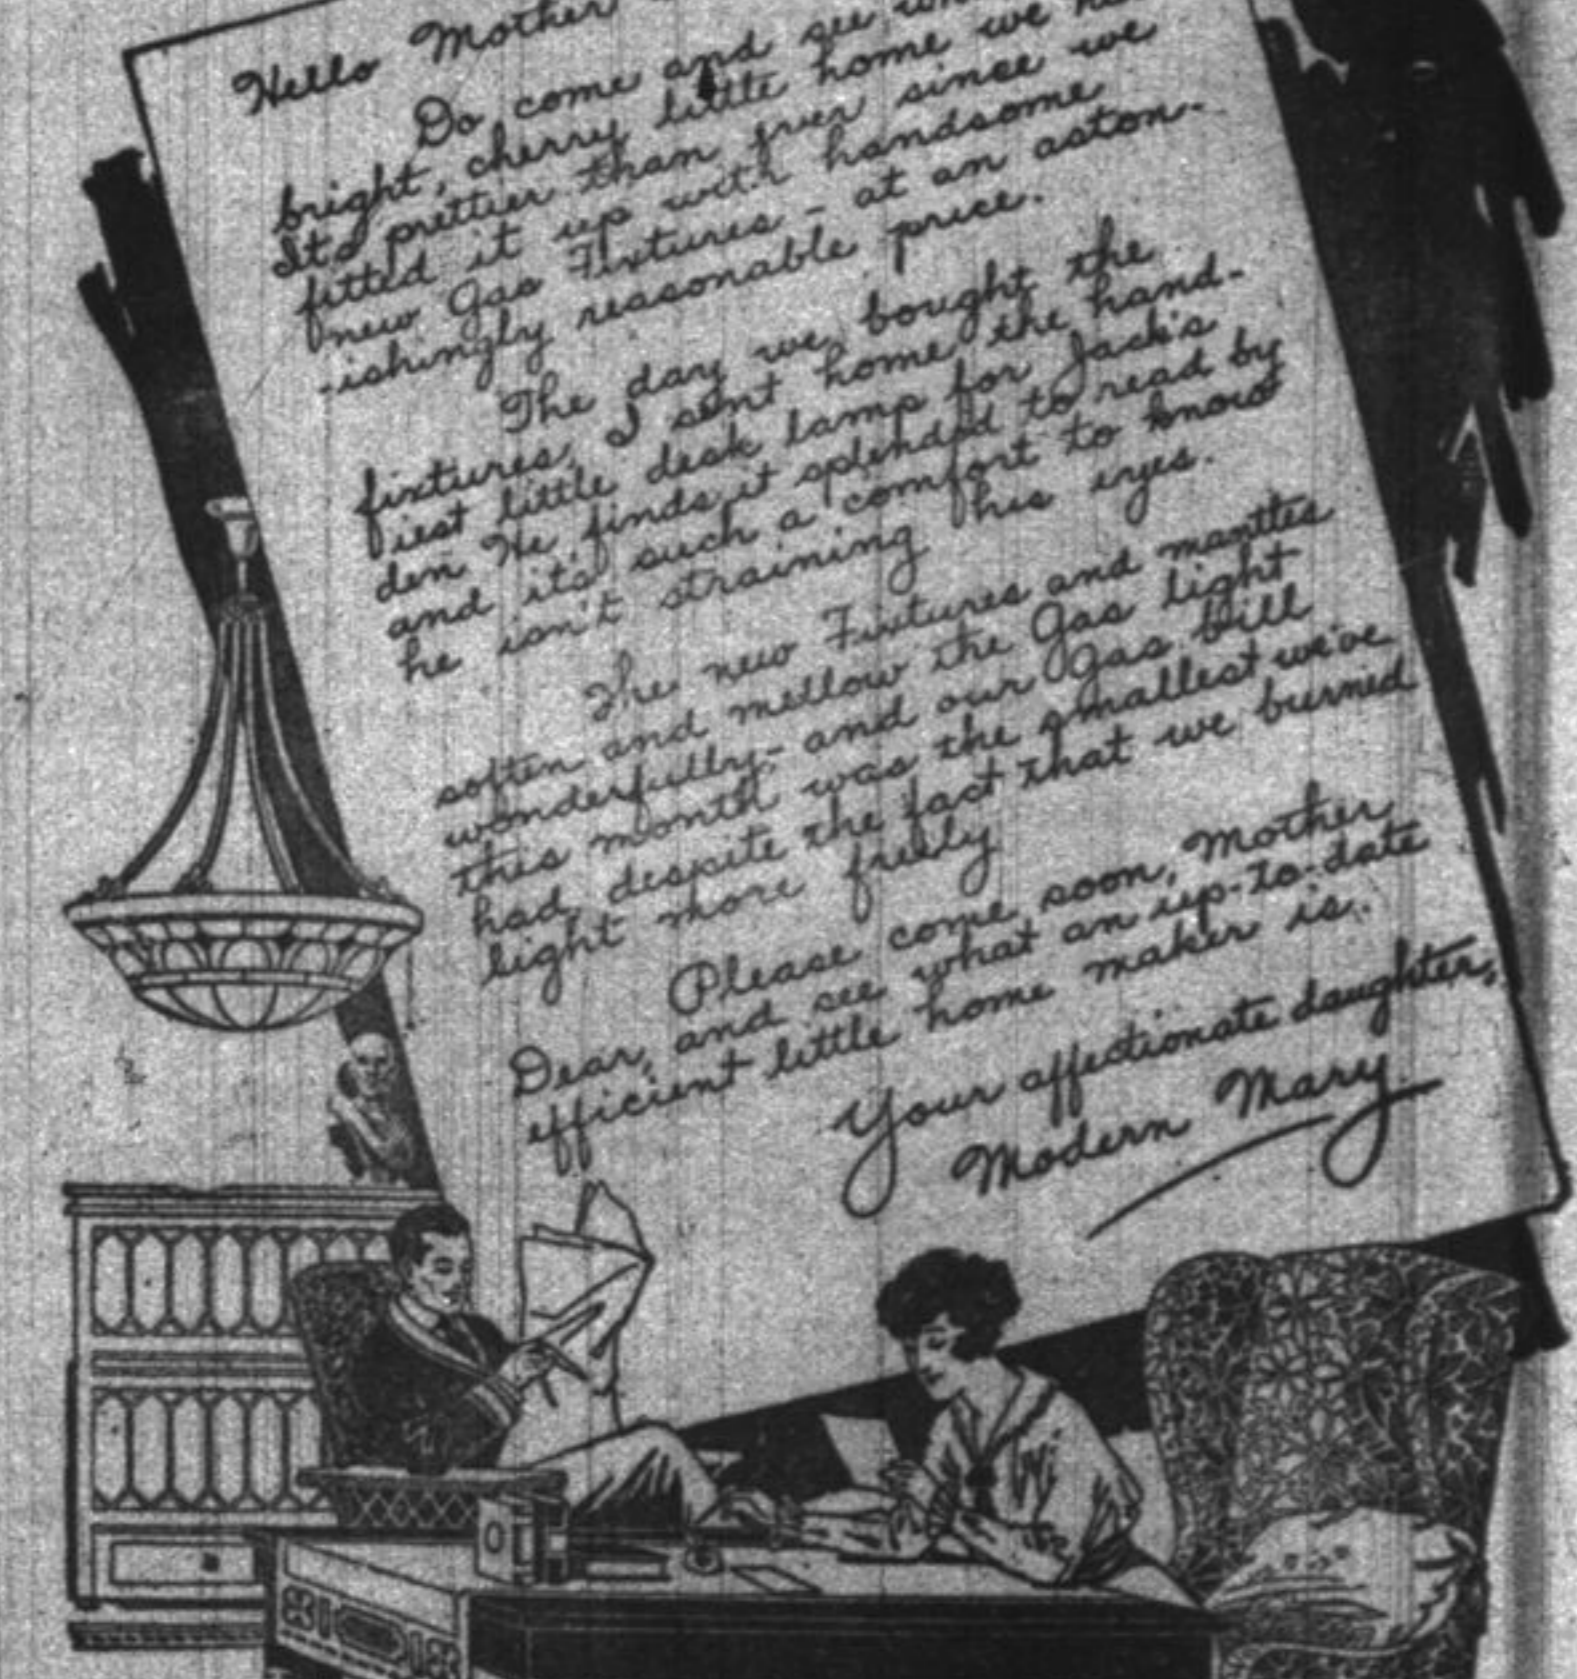 Hello Mother
Do come and see
bright, cherry little home we
It's prettier than ever since we
fitted it up with handsome
new Gas Fixtures - at an aston-
-ishingly reasonable price.
The day we bought the
fixtures, I sent home the hand-
iest little desk lamp for Jack's
den He finds it splendid to read by
and it's such a comfort to know
he isn't straining his eyes.
The new Fixtures and mantles
soften and mellow the Gas light
wonderfully - and our Gas bill
this month was the smallest we've
had, despite the fact that we burned
light more freely
Please come soon, Mother
Dear, and see what an up-to-date
efficient little home maker is.
Your affectionate daughter,
Modern Mary